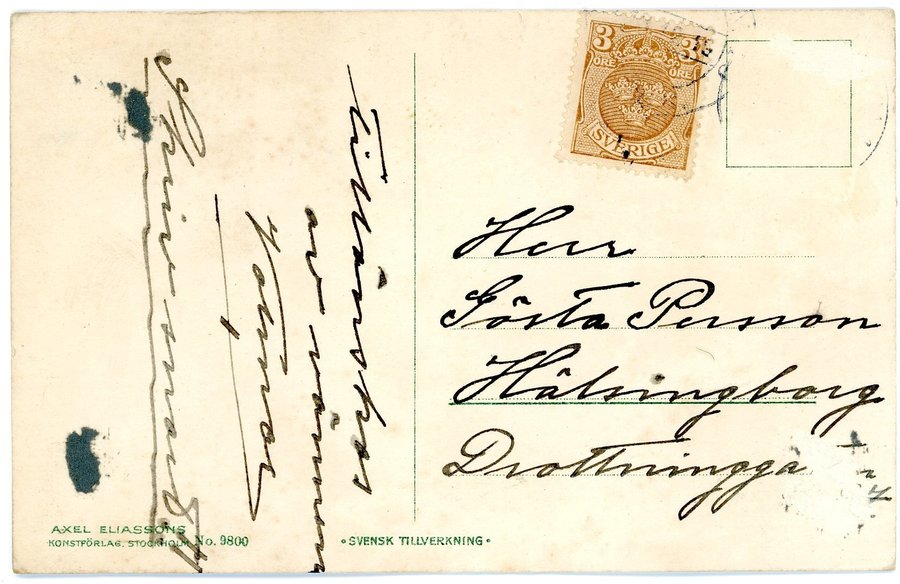 Tillönskas
av vännen
Skriv snart
3 3
ÖRE ÖRE
SVERIGE
Herr
Gösta Persson
Hälsingborg
Drottningga
AXEL ELIASSONS
KONSTFÖRLAG. STOCKHOLM No. 9800
• SVENSK TILLVERKNING •